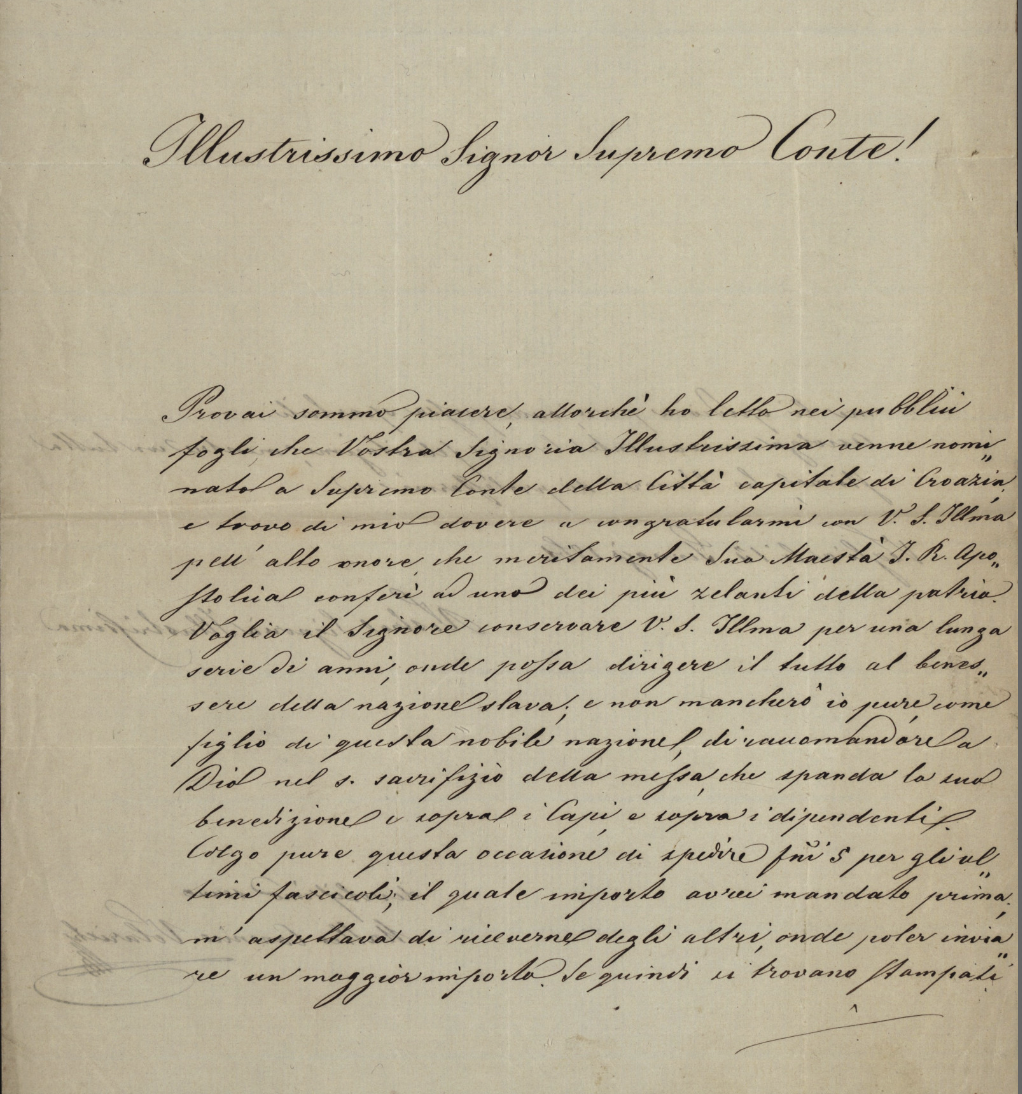 Illustrissimo Signor Supremo Conte!
Provai sommo piacere, allorchè ho letto nei pubblici
fogli, che Vostra Signoria Illustrissima venne nomi„
nato a Supremo Conte della Città capitale di Croazia,
e trovo di mio dovere a congratularmi con V. S. Illma
pell' alto onore, che meritamente Sua Maestà I. R. Apo„
stolica conferì ad uno dei più zelanti della patria.
Voglia il Signore conservare V. S. Illma per una lunga
serie di anni, onde possa dirigere il tutto al benes„
sere della nazione slava; e non mancherò io pure, come
figlio di questa nobile nazione, di raccomandare a
Dio nel s. sacrifizio della messa, che spanda la sua
benedizione e sopra i Capi, e sopra i dipendenti.
Colgo pure questa occasione di spedire fni 5 per gli ul„
timi fascicoli; il quale importo avrei mandato prima;
m' aspettava di riceverne degli altri, onde poter invia„
re un maggior importo. Se quindi si trovano stampati